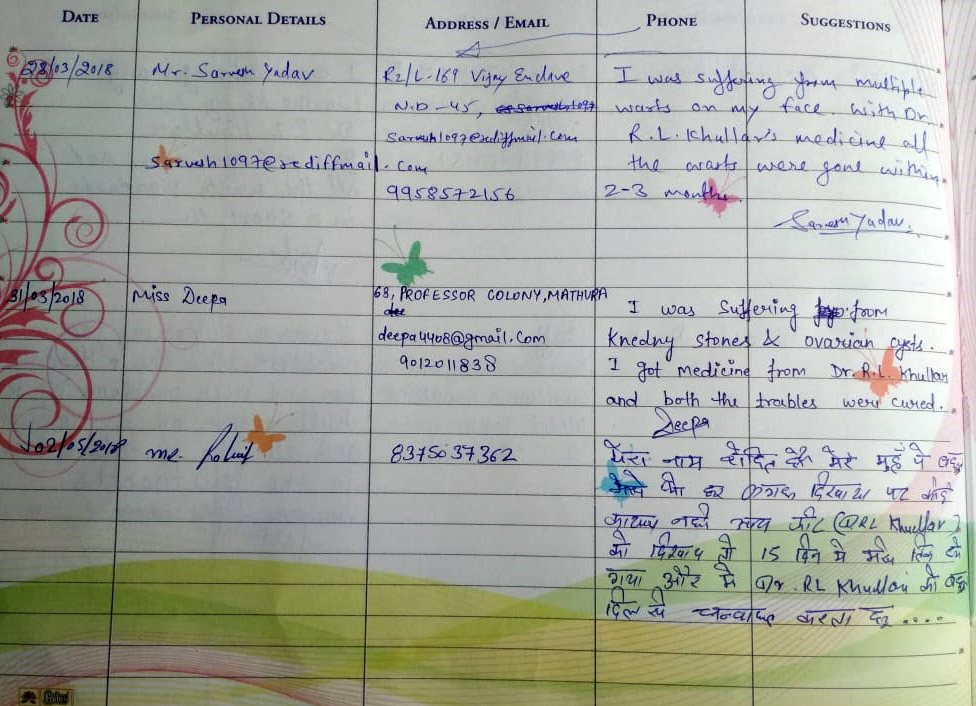 DATE PERSONAL DETAILS ADDRESS / EMAIL PHONE SUGGESTIONS
28/03/2018 Mr. Sarvesh Yadav R2/L-169 Vijay Enclave I was suffering from multiple
N.D-45, warts on my face. With Dr.
Sarvesh1097@rediffmail.com R.L. Khullar's medicine all
Sarvesh1097@rediffmail.com the warts were gone within
9958572156 2-3 months.
Sarvesh Yadav.
31/03/2018 Miss Deepa 68, PROFESSOR COLONY, MATHURA I was Suffering from
deepa4408@gmail.com Knedny stones & ovarian cysts.
9012011838 I got medicine from Dr. R.L. Khullar
and both the trables were cured.
Deepa
02/05/2018 mr. Rohit 8375037362 मेरा नाम रोहित है मेरे मुहँ पे
हर जगह दिखाया पर कोई
फायदा नही (Dr RL Khullar)
को दिखाया तो 15 दिन मे
गया और मे Dr. RL Khullar को
दिल से धन्यवाद करता हू ....